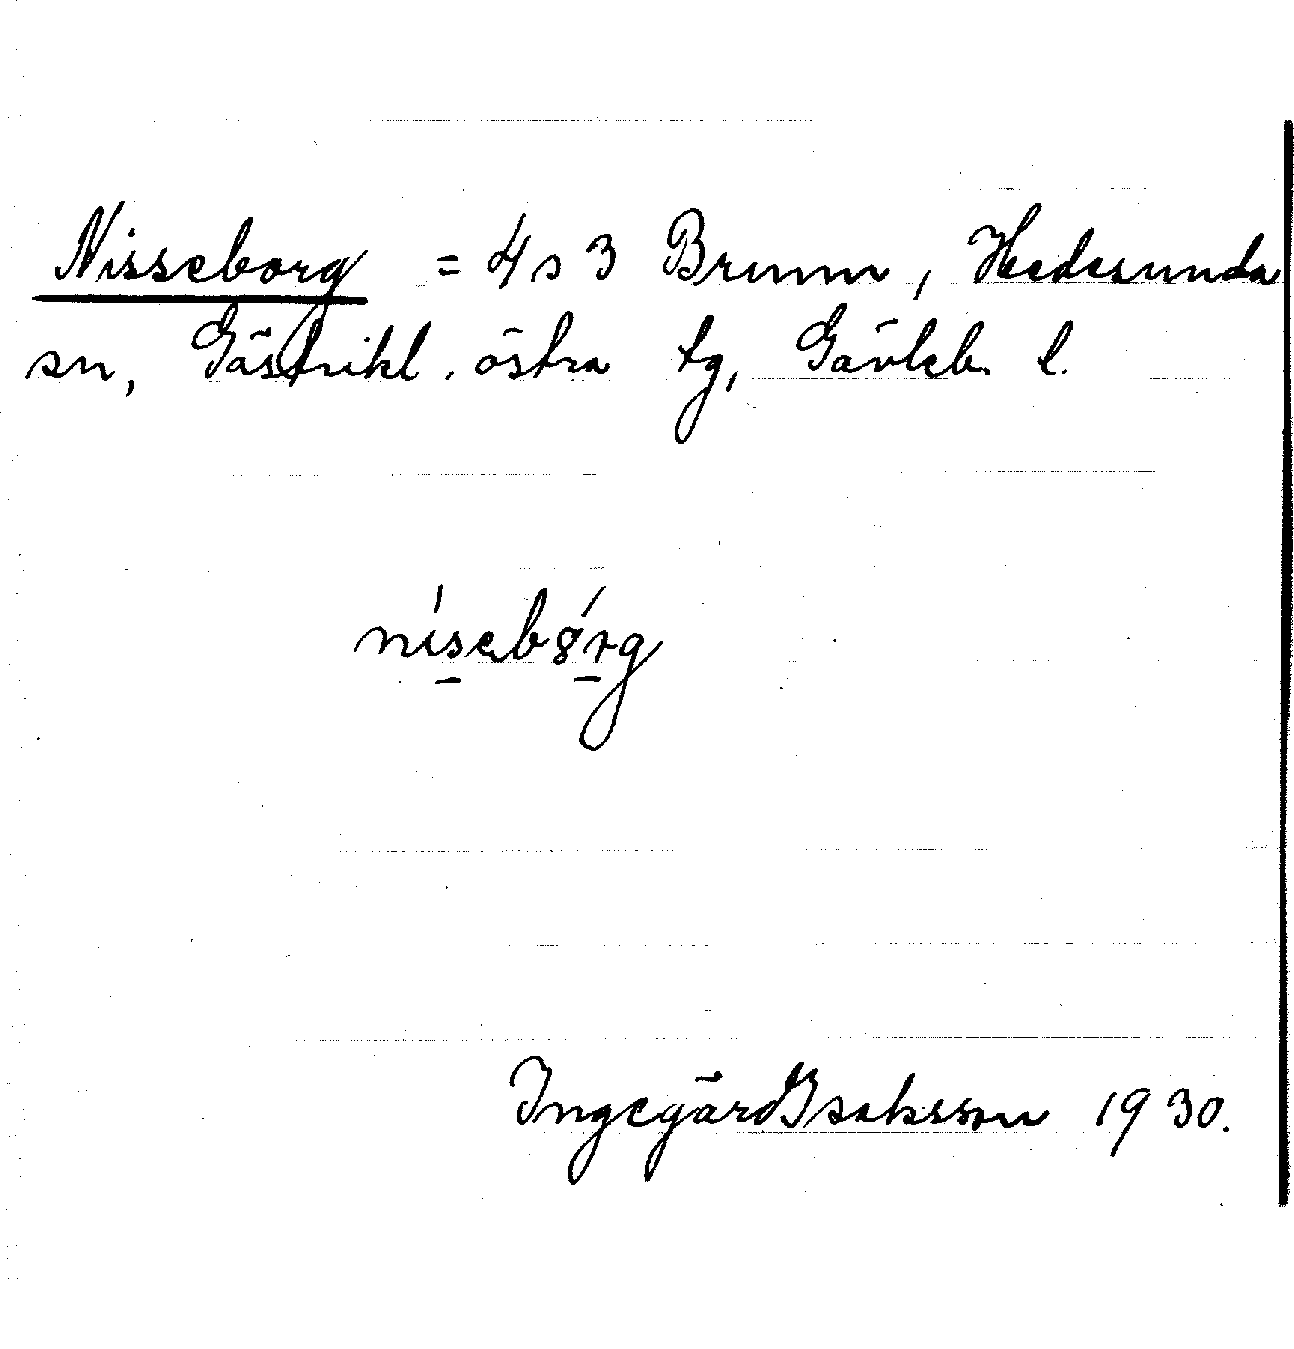 Nisseborg = 4s3 Brunn, Hedesunda
sn, Gästrikl. östra tg, Gävleb. l.
nísebórg
Ingegärd Isaksson 1930.